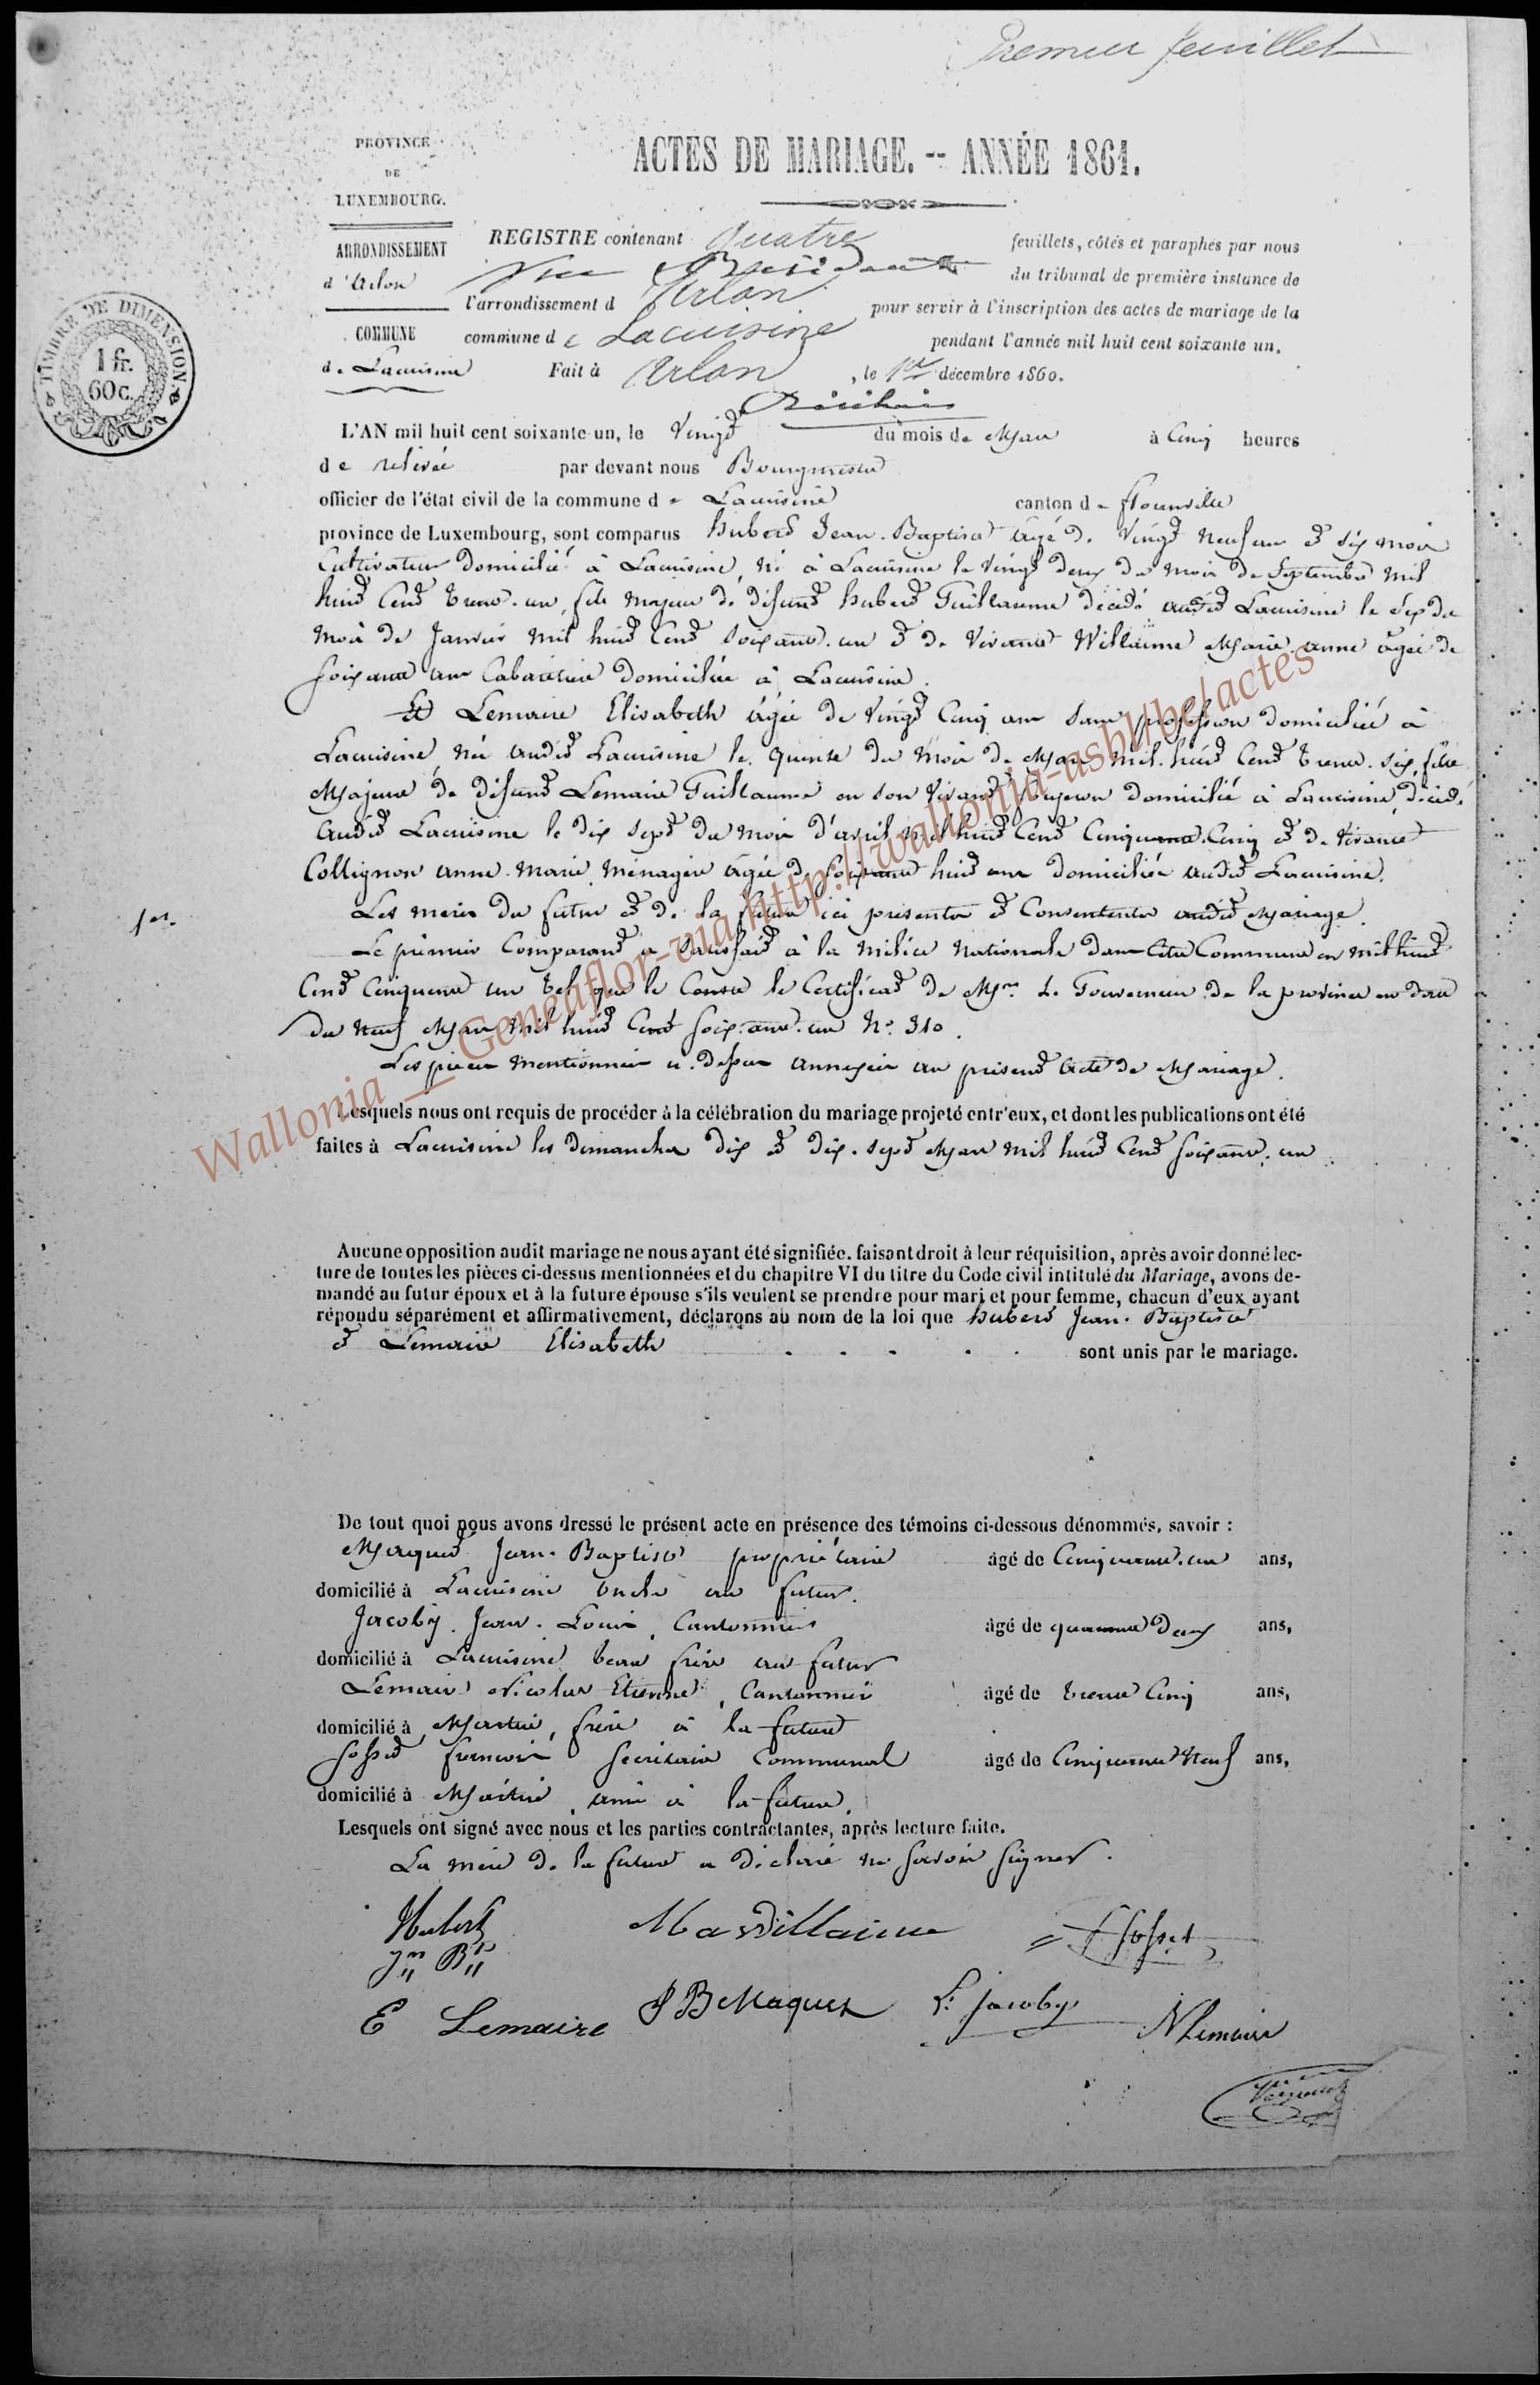 Premier feuillet
PROVINCE
DE
LUXEMBOURG.
ACTES DE MARIAGE. -- ANNÉE 1861.
ARRONDISSEMENT
d'Arlon
COMMUNE
de Lacuisine
TIMBRE DE DIMENSION
1 fr.
60 c.
REGISTRE contenant quatre feuillets, côtés et paraphés par nous
Vice Président du tribunal de première instance de
l'arrondissement d'Arlon pour servir à l'inscription des actes de mariage de la
commune de Lacuisine pendant l'année mil huit cent soixante un.
Fait à Arlon, le 1er décembre 1860.
L'AN mil huit cent soixante un, le Vingt du mois de Mars à Cinq heures
de relevée par devant nous Bourgmestre
officier de l'état civil de la commune de Lacuisine canton de Florenville
province de Luxembourg, sont comparus hubert Jean-Baptiste âgé de Vingt Neuf ans et six mois
Cultivateur Domicilié à Lacuisine, né à Lacuisine le Vingt deux du mois de Septembre mil
huit Cent trente-un, fils majeur de défunt hubert Guillaume décédé audit Lacuisine le six du
mois de Janvier mil huit Cent soixante-un et de vivante Willaime Marie anne âgée de
soixante ans Cabaretière domiciliée à Lacuisine.
Et Lemaire Elisabeth âgée de Vingt Cinq ans sans profession domiciliée à
Lacuisine née audit Lacuisine le quinze du mois de Mars mil-huit Cent trente-six, fille
Majeure de défunt Lemaire Guillaume en son vivant domicilié à Lacuisine, décédé
audit Lacuisine le dix sept du mois d'avril mil huit Cent Cinquante-Cinq et de vivante
Collignon anne-Marie, ménagère âgée de soixante huit ans domiciliée audit Lacuisine.
Les mères du futur et de la future ici présentes et Consentantes audit Mariage.
1er.
Le premier Comparant a satisfait à la milice Nationale dans Cette Commune en mil huit
Cent Cinquante un tel que le Constate le Certificat de Mr. le Gouverneur de la province en date
du Neuf Mars mil huit Cent soixante-un No. 310.
Les pièces mentionnées ci-dessus annexées au présent acte de Mariage.
Lesquels nous ont requis de procéder à la célébration du mariage projeté entr'eux, et dont les publications ont été
faites à Lacuisine les dimanches dix et dix-sept Mars mil huit Cent soixante-un
Aucune opposition audit mariage ne nous ayant été signifiée. faisant droit à leur réquisition, après avoir donné lec-
ture de toutes les pièces ci-dessus mentionnées et du chapitre VI du titre du Code civil intitulé du Mariage, avons de-
mandé au futur époux et à la future épouse s'ils veulent se prendre pour mari et pour femme, chacun d'eux ayant
répondu séparément et affirmativement, déclarons au nom de la loi que hubert Jean-Baptiste
et Lemaire Elisabeth sont unis par le mariage.
De tout quoi nous avons dressé le présent acte en présence des témoins ci-dessous dénommés, savoir :
Maquet Jean-Baptiste propriétaire âgé de Cinquante-un ans,
domicilié à Lacuisine oncle au futur.
Jacoby Jean-Louis, Cantonnier âgé de quarante Deux ans,
domicilié à Lacuisine beau frère au futur
Lemaire Nicolas Etienne, Cantonnier âgé de trente Cinq ans,
domicilié à Martué, frère à la future
Josset francois secrétaire Communal âgé de Cinquante Neuf ans,
domicilié à Martué, ami à la future,
Lesquels ont signé avec nous et les parties contractantes, après lecture faite.
La mère de la future a déclaré ne savoir signer.
Hubert
Jn Bte
Ma Willaime
E Lemaire
J B Maquet
L. Jacoby
N Lemaire
Wallonia __ Geneaflor-via http://wallonia-asbl/be/actes